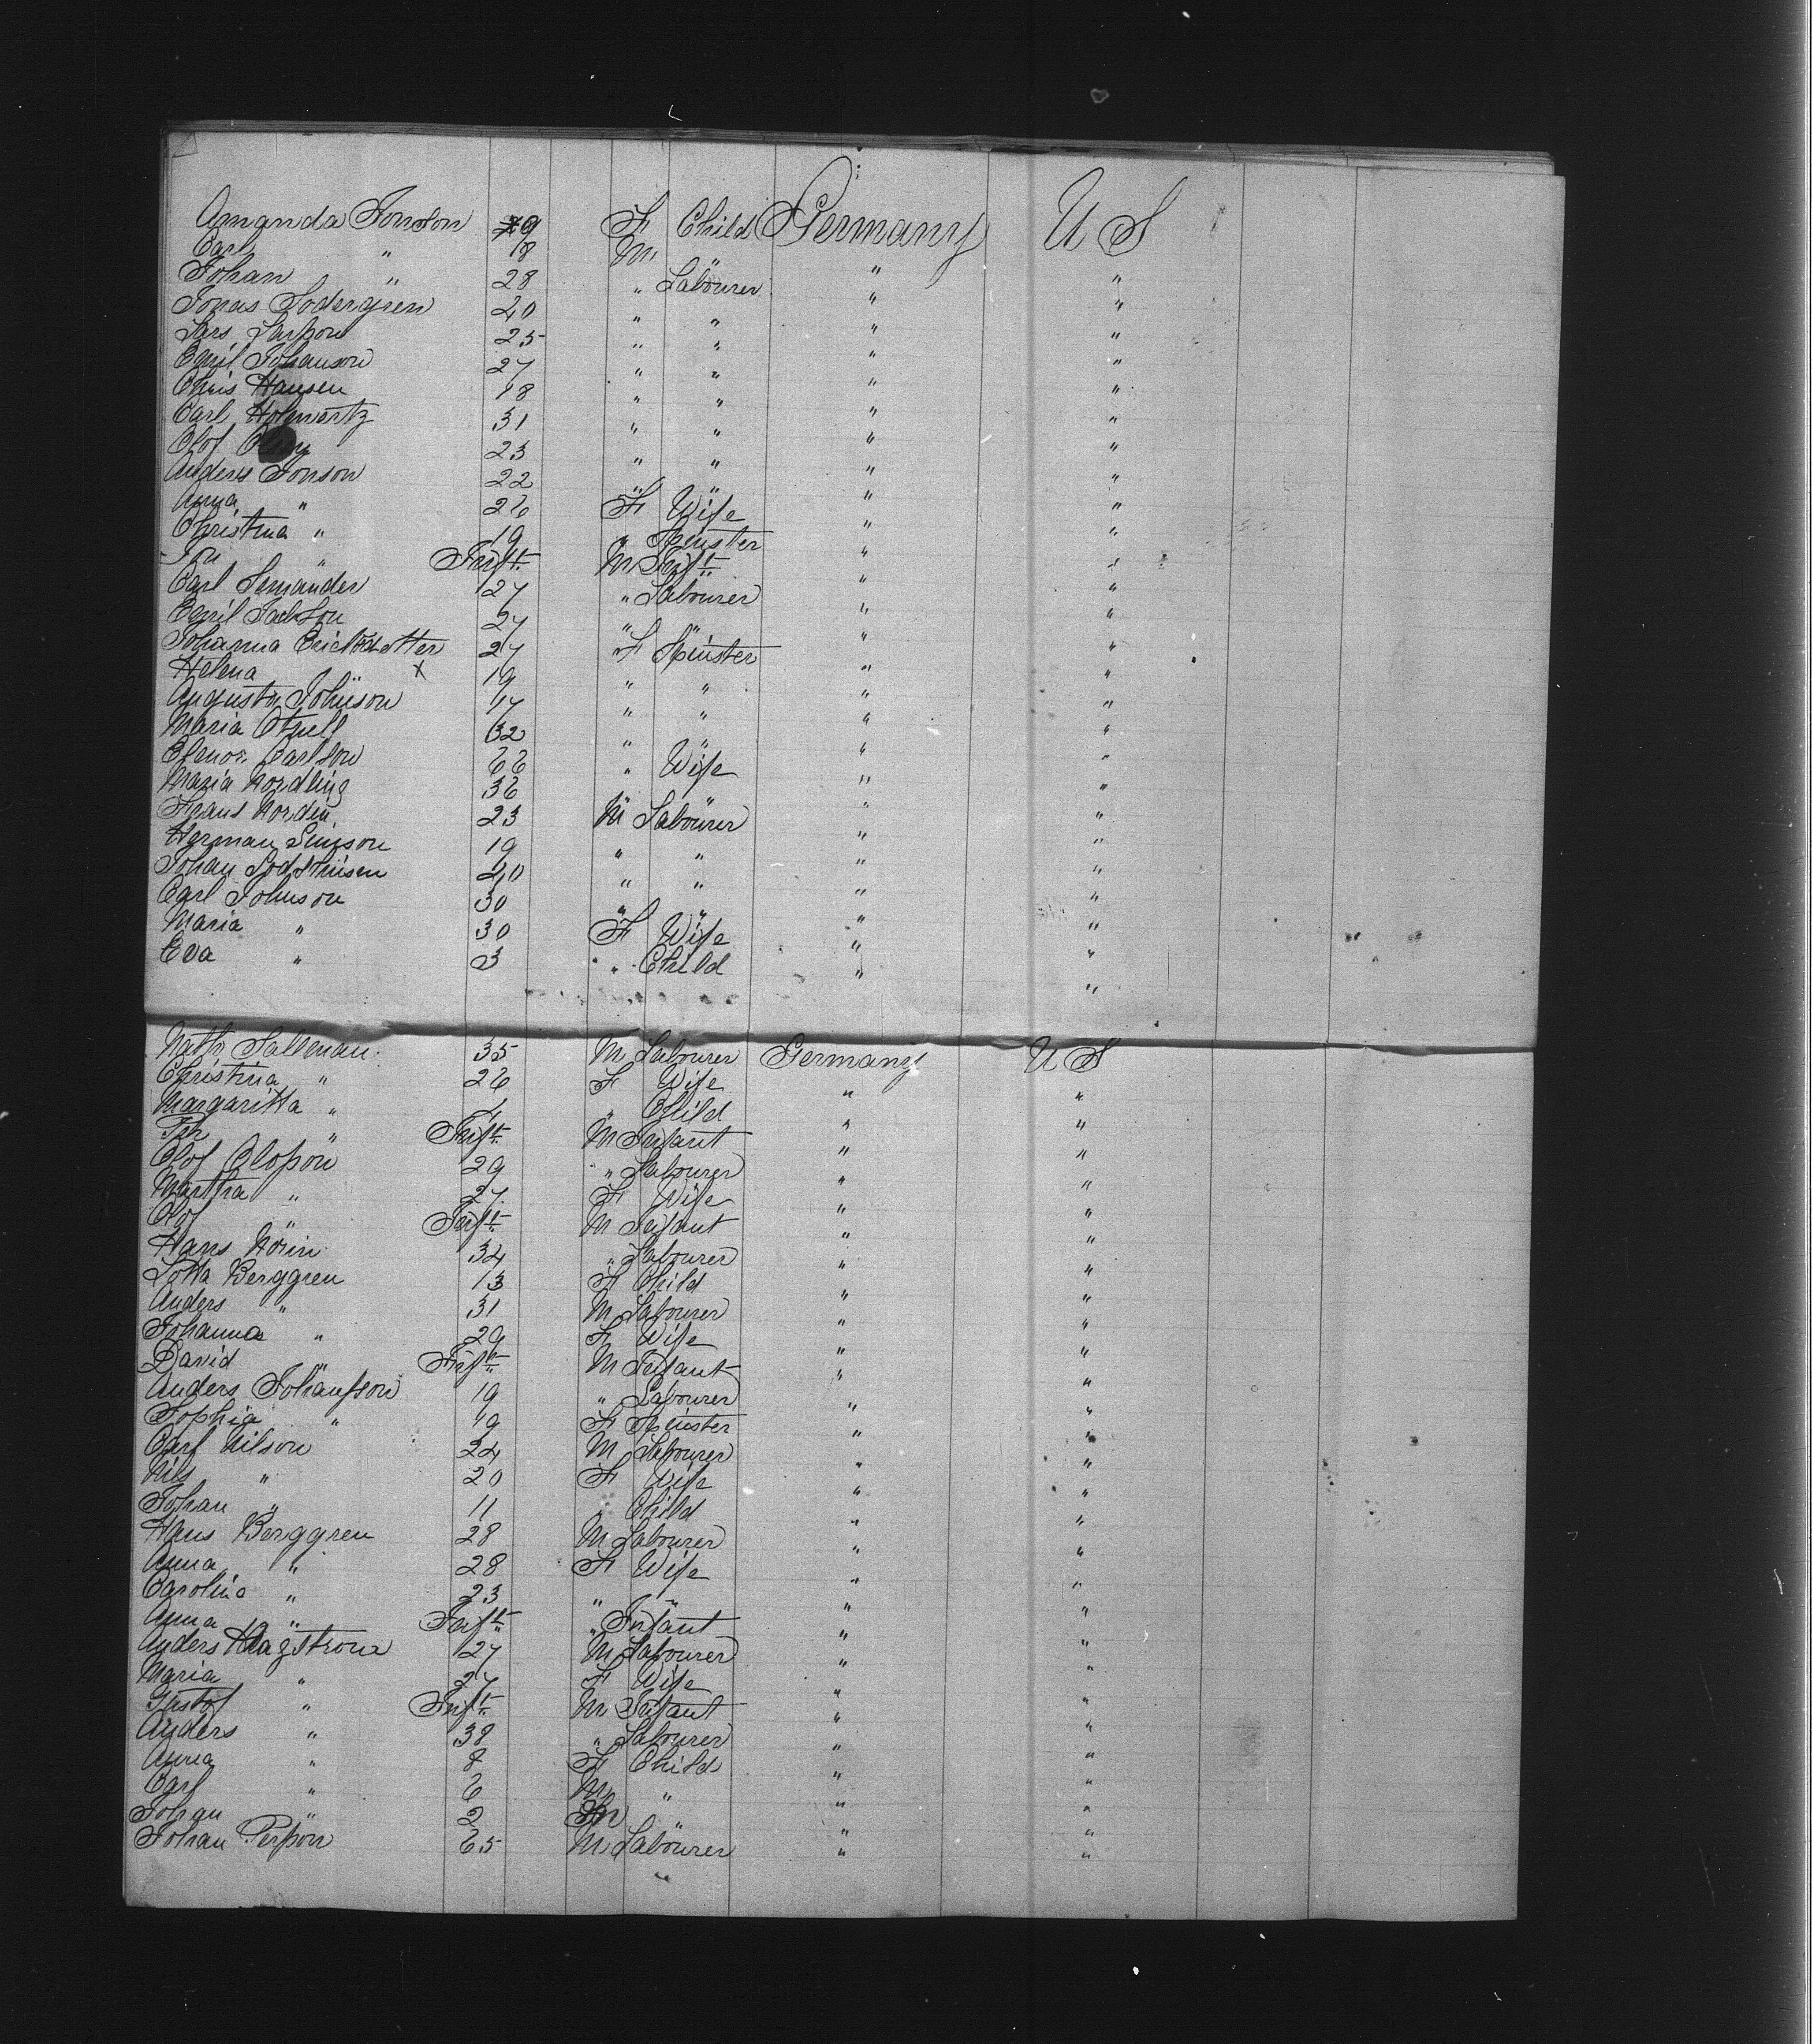 Amanda Jonson 9 F Child Germany U S
Carl " 8 M " " "
Johan " 28 " Labourer " "
Jonas Sodergren 20 " " " "
Lars Larsson 25 " " " "
Emil Johanson 27 " " " "
Chris Hansen 18 " " " "
Carl Holmertz 31 " " " "
Olof 23 " " " "
Anders Jonson 22 " " " "
Anna " 26 F Wife " "
Christina " 19 " Spinster " "
" Inft M Inft " "
Carl 27 " Labourer " "
Emil Jackson 27 " " " "
Johanna 27 F Spinster " "
Helena " x 19 " " " "
Augusta Johnson 17 " " " "
Maria 32 " " " "
Elenor Carlson 66 " Wife " "
Maria Nordling 36 " " " "
Frans Norden 23 M Labourer " "
Herman Simson 19 " " " "
Johan 40 " " " "
Carl Johnson 30 " " " "
Maria " 30 F Wife " "
Eva " 3 " Child " "
Math Sallman 35 M Labourer Germany U S
Christina " 26 F Wife " "
Margaritta " " Child " "
Joh " Inft M Infant " "
Olof Olosson 29 " Labourer " "
Martha " 27 F Wife " "
Olof " Inft M Infant " "
Hans Norin 34 " Labourer " "
Lotta Berggren 13 F Child " "
Anders " 31 M Labourer " "
Johanna " 29 F Wife " "
David Inft M Infant " "
Anders Johansson 19 " Labourer " "
Sophia " 19 F Spinster " "
Carl Nilson 24 M Labourer " "
Nils " 20 F Wife " "
Johan " 11 Child " "
Hans Berggren 28 M Labourer " "
Anna " 28 F Wife " "
Carolina " 23 " " " "
Anna " Inft " Infant " "
Anders Hagstrom 27 M Labourer " "
Maria " 27 F Wife " "
Gustof " Inft M Infant " "
Anders " 38 " Labourer " "
Anna " 8 F Child " "
Carl " 6 M " " "
Johan " 2 M " " "
Johan Persson 65 M Labourer " "